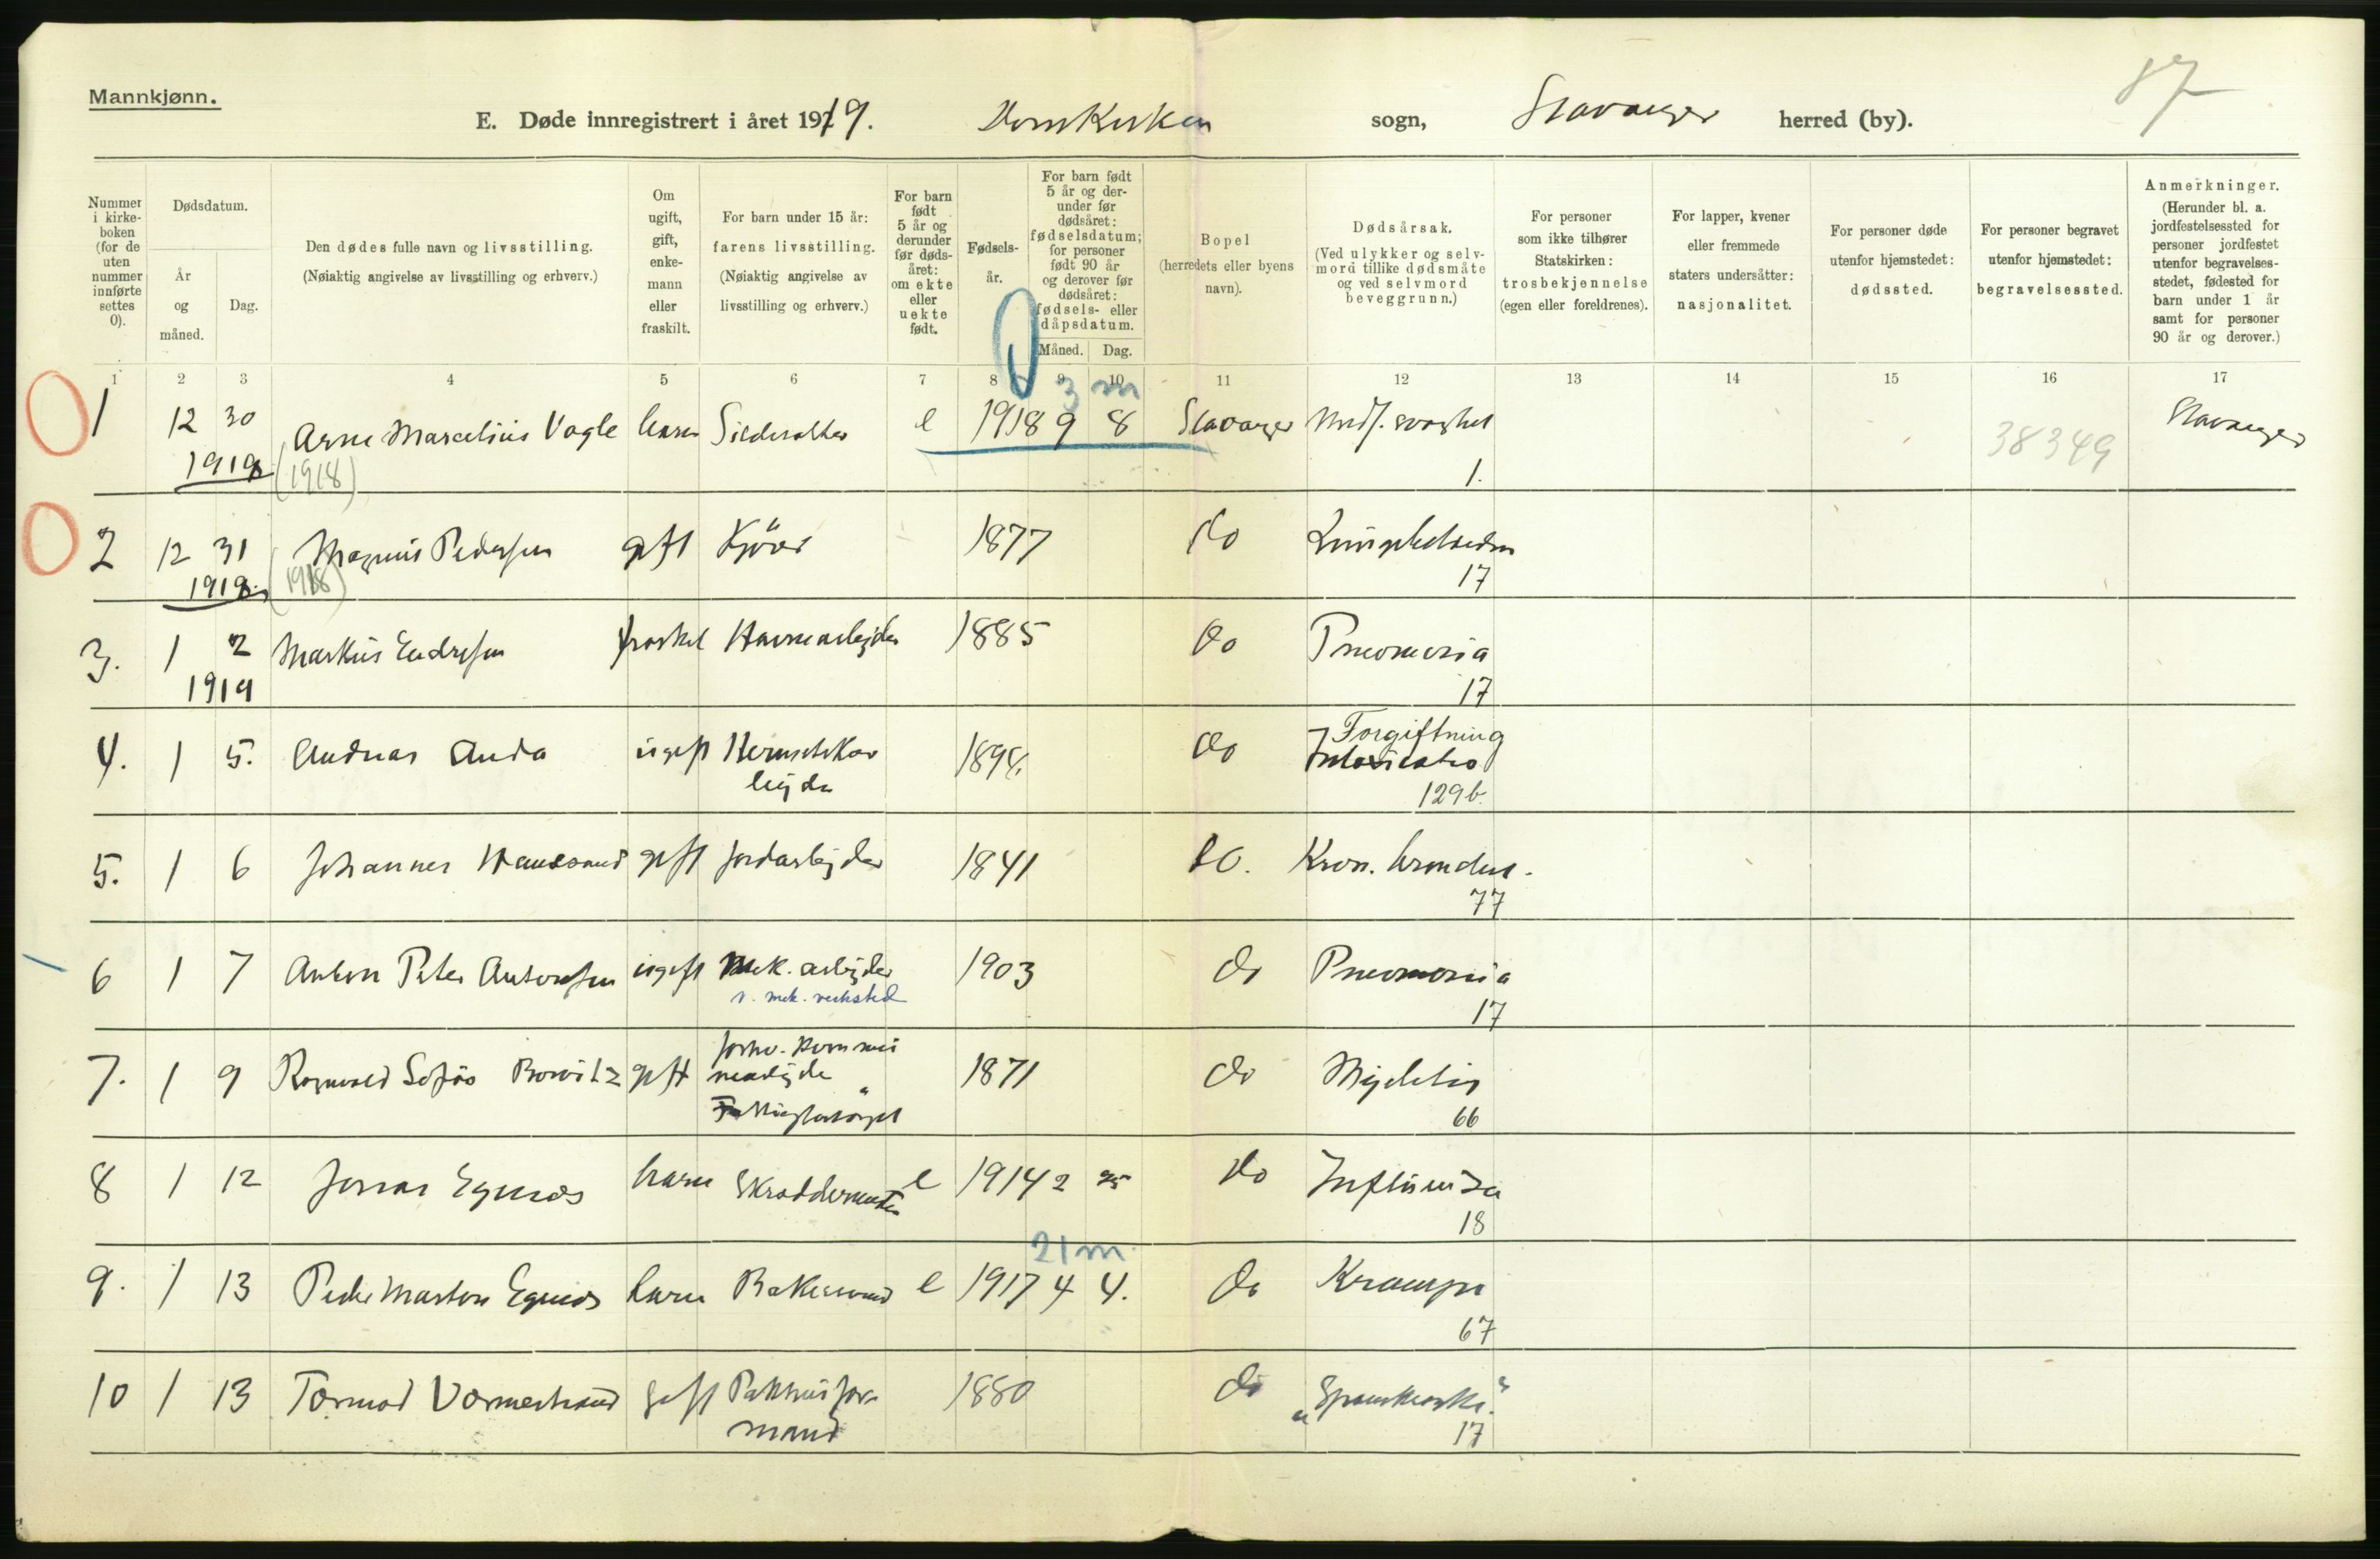 Mannkjønn.
87
E. Døde innregistrert i året 1919. Domkirken sogn, Stavanger herred (by).
Nummer i kirkeboken (for de uten nummer innførte settes 0).
Dødsdatum.
År og måned.
Dag.
Den dødes fulle navn og livsstilling.
(Nøiaktig angivelse av livsstilling og erhverv.)
Om ugift, gift, enkemann eller fraskilt.
For barn under 15 år: farens livsstilling.
(Nøiaktig angivelse av livsstilling og erhverv.)
For barn født 5 år og derunder før dødsåret: om ekte eller uekte født.
Fødselsår.
For barn født 5 år og derunder før dødsåret: fødselsdatum; for personer født 90 år og derover før dødsåret: fødsels- eller dåpsdatum.
Måned. Dag.
Bopel
(herredets eller byens navn).
Dødsårsak.
(Ved ulykker og selvmord tillike dødsmåte og ved selvmord beveggrunn.)
For personer som ikke tilhører Statskirken: trosbekjennelse (egen eller foreldrenes).
For lapper, kvener eller fremmede staters undersåtter: nasjonalitet.
For personer døde utenfor hjemstedet: dødssted.
For personer begravet utenfor hjemstedet: begravelsessted.
Anmerkninger.
(Herunder bl. a. jordfestelsessted for personer jordfestet utenfor begravelsesstedet, fødested for barn under 1 år samt for personer 90 år og derover.)
1 2 3 4 5 6 7 8 9 10 11 12 13 14 15 16 17
3 m
1 12 30 Arne Marcelius Vagle barn e 1918 9 8 Stavanger Medf. svaghet 38349 Stavanger
1919 (1918) 1.
2 12 31 Magnus Pedersen gift 1877 do
1918. (1918) 17
3. 1 2 Markus Endresen fraskil Havnearbejder 1885 do Pneumonia
1919 17
4. 1 5. Andreas Anda ugift Hermetikar 1894. do Forgiftning
bejder Intoxicatio
129b.
5. 1 6 Johannes gift Jordarbejder 1841 do. Kron. bronchit.
77
6 1 7 Anton Peter Antonsen ugift Mek. arbejder 1903 do Pneumonia
v. mek. verksted 17
7. 1 9 Ragnvald gift 1871 do Myelitis
66
8 1 12 Jonas Egenes barn Skreddermester e 1914 2 25 do Influenza
18
21 m.
9. 1 13 Peder Marton Egenes barn e 1917 4 4. do Krampe
67
10 1 13 Tormod Vormestrand gift Pakhusfor- 1880 do "Spanskesyke."
mand 17